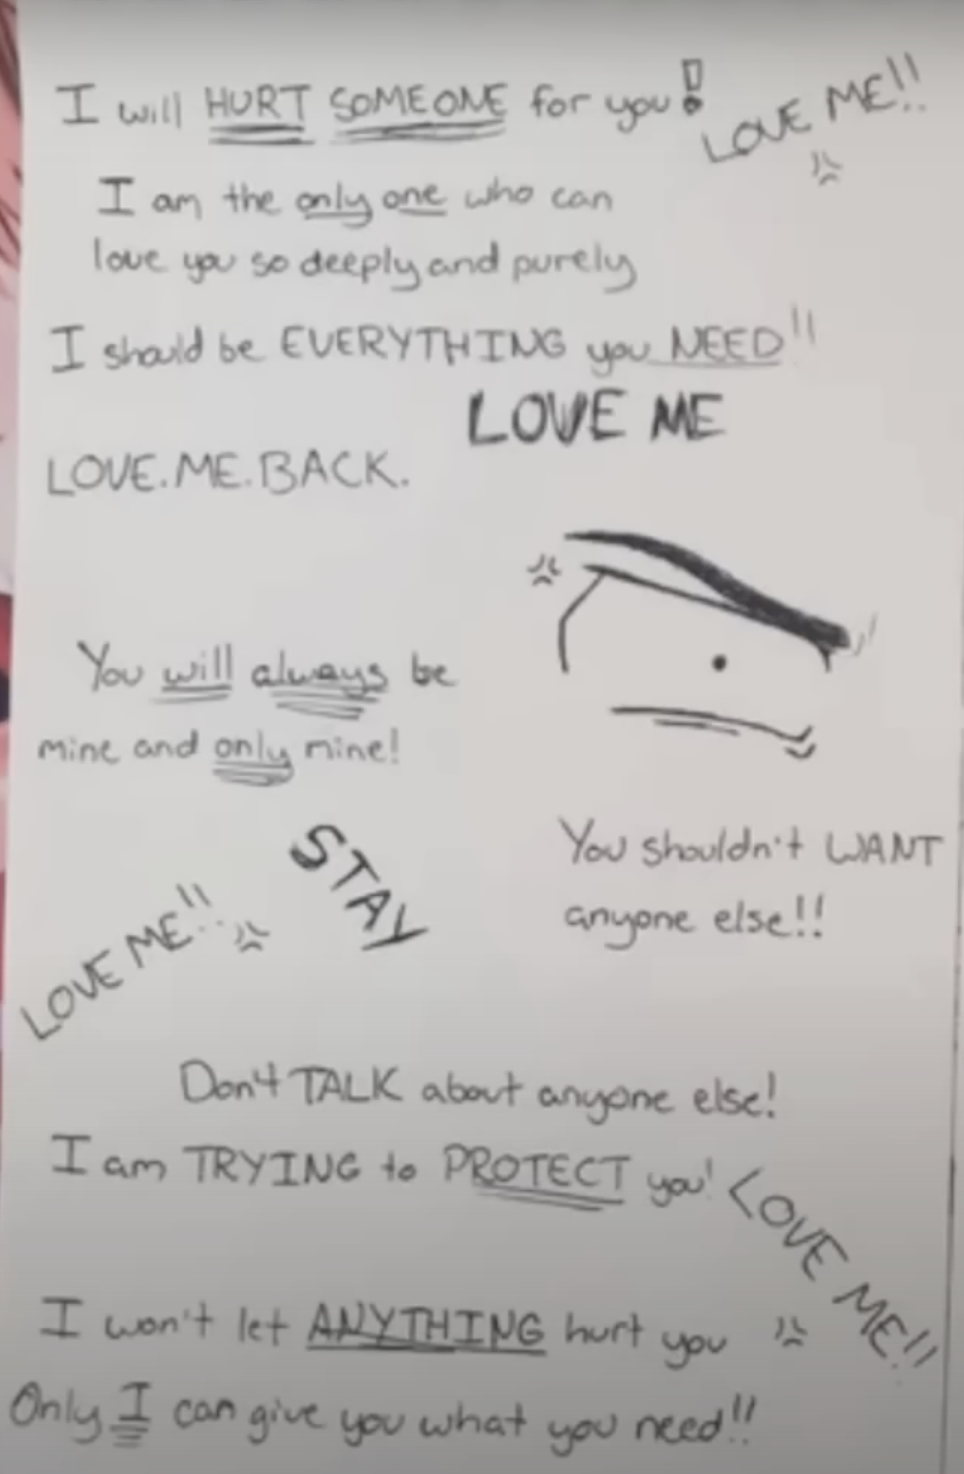 I will HURT SOMEONE for you!
LOVE ME!!
I am the only one who can
love you so deeply and purely
I should be EVERYTHING you NEED!!
LOVE ME
LOVE.ME.BACK.
You will always be
mine and only mine!
STAY
You shouldn't WANT
anyone else!!
LOVE ME!!
Don't TALK about anyone else!
I am TRYING to PROTECT you!
LOVE ME!!
I won't let ANYTHING hurt you
Only I can give you what you need!!